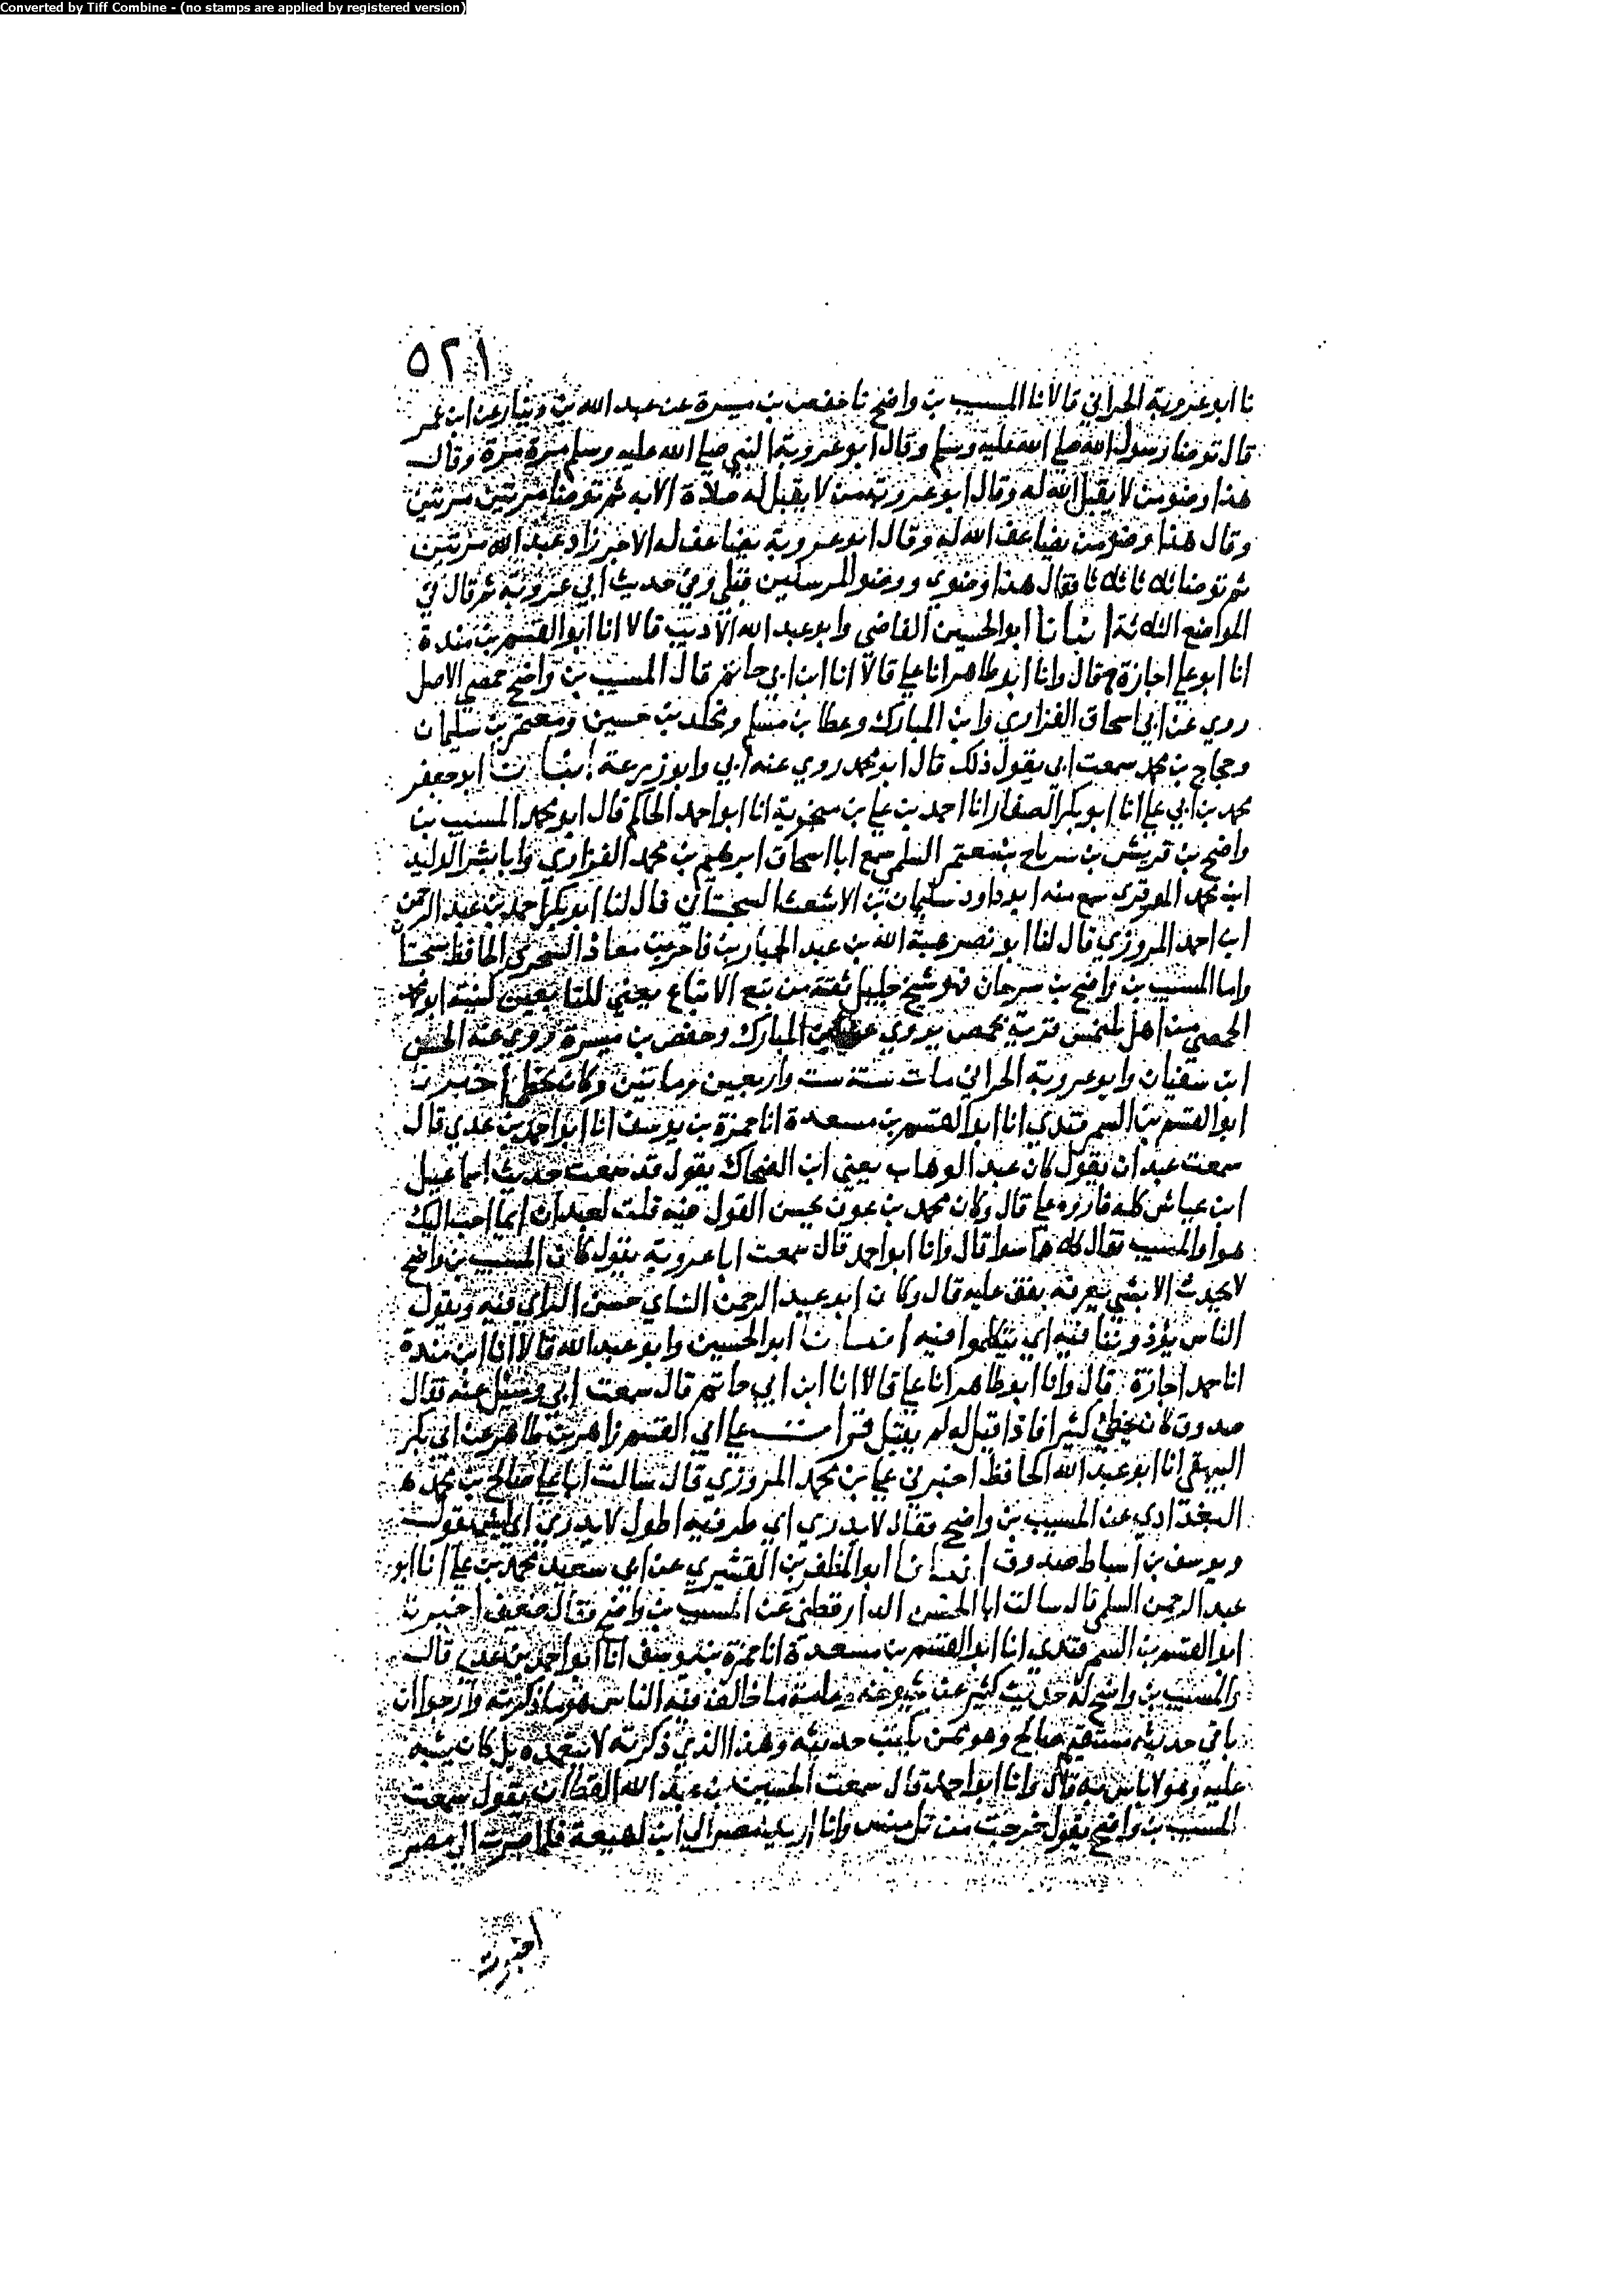 Converted by Tiff Combine - (no stamps are applied by registered version)
٥٢١
نا ابو عروبة الحراني قالا نا المسيب بن واضح نا حفص بن ميسرة عن عبد الله بن دينار عن ابن عمر
قال توضا رسول الله صلى الله عليه وسلم وقال ابو عروبة النبي صلى الله عليه وسلم مرة مرة وقال
هذا وضو من لا يقبل الله له وقال ابو عروبة من لا يقبل له صلاة الا به ثم توضا مرتين مرتين
وقال هذا وضو من يضاعف الله له وقال ابو عروبة يضاعف له الاجر زاد عبد الله مرتين
ثم توضا ثلاثا ثلاثا فقال هذا وضوي ووضو المرسلين قبلي وفي حديث ابي عروبة ثم قال في
المواضع الثلاثة انبانا ابو الحسين القاضي وابو عبد الله الاديب قالا انا ابو القسم بن مندة
انا ابو علي اجازة ح قال وانا ابو طاهر انا علي قالا انا ابن ابي حاتم قال المسيب بن واضح حمصي الاصل
روي عن ابي اسحاق الفزاري وابن المبارك وعطا بن مسلم ومخلد بن حسين ومعتمر بن سليمان
وحجاج بن محمد سمعت ابي يقول ذلك قال ابو محمد روي عنه ابي وابو زرعة انبانا ابو جعفر
محمد بن ابي علي انا ابو بكر الصفار انا احمد بن علي بن منجوية انا ابو احمد الحاكم قال ابو محمد المسيب بن
واضح بن قريش بن سرياح بن معتمر السلمي سمع ابا اسحاق ابرهيم بن محمد الفزاري وابا بشر الوليد
ابن محمد الموقري سمع منه ابو داود سليمان بن الاشعث السجستاني قال لنا ابو بكر احمد بن عبد الرحمن
ابن احمد المروزي قال لنا ابو نصر هبة الله بن عبد الجبار بن فاخر بن معاذ السجزي الحافظ بسجستان
واما المسيب بن واضح بن سرحان فهو شيخ جليل ثقة من تبع الاتباع يعني للتابعين كنيته ابو محمد
الحمصي من اهل تلمنس قرية بحمص يروي عن ابن المبارك وحفص بن ميسرة روي عنه الحسن
ابن سفيان وابو عروبة الحراني مات سنة ست واربعين ومايتين وكان يخطي اخبرنا
ابو القسم بن السمرقندي انا ابو القسم بن مسعدة انا حمزة بن يوسف انا ابو احمد بن عدي قال
سمعت عبدان يقول كان عبد الوهاب يعني ابن الضحاك يقول قد سمعت حديث اسماعيل
ابن عياش كله فاروه علي قال وكان محمد بن عوف يحسن القول فيه قلت لعبدان ايما احب اليك
هو او المسيب فقال كلاهما سوا قال وانا ابو احمد قال سمعت ابا عروبة يقول كان المسيب بن واضح
لا يحدث الا بشي يعرفه يقف عليه قال وكان ابو عبد الرحمن النساي حسن الراي فيه ويقول
الناس يؤذوننا فيه اي يتكلموا فيه انبانا ابو الحسين وابو عبد الله قالا انا ابن مندة
انا حمد اجازة قال وانا ابو طاهر انا علي قالا انا ابن ابي حاتم قال سمعت ابي وسئل عنه فقال
صدوق كان يخطئ كثيرا فاذا قيل له لم يقبل قرات علي ابي القسم زاهر بن طاهر عن ابي بكر
البيهقي انا ابو عبد الله الحافظ اخبرني علي بن محمد المروزي قال سالت ابا علي صالح بن محمد
البغدادي عن المسيب بن واضح فقال لا يدري اي طرفيه اطول لا يدري ايش يقول
ويوسف بن اسباط صدوق انبانا ابو المظفر بن القشيري عن ابي سعيد محمد بن علي انا ابو
عبد الرحمن السلمي قال سالت ابا الحسن الدارقطني عن المسيب بن واضح فقال ضعيف اخبرنا
ابو القسم بن السمرقندي انا ابو القسم بن مسعدة انا حمزة بن يوسف انا ابو احمد بن عدي قال
والمسيب بن واضح له حديث كثير عن شيوخه وعامة ما خالف فيه الناس هو ما ذكرته وارجو ان
باقي حديثه مستقيم صالح وهو ممن يكتب حديثه وهذا الذي ذكرته لا يتعمده بل كان يشبه
عليه وهو لا باس به قال وانا ابو احمد قال سمعت الحسين بن عبد الله القطان يقول سمعت
المسيب بن واضح يقول خرجت من تل منس وانا اريد مصر الي ابن لهيعة فلما صرت الي مصر
اخبرت